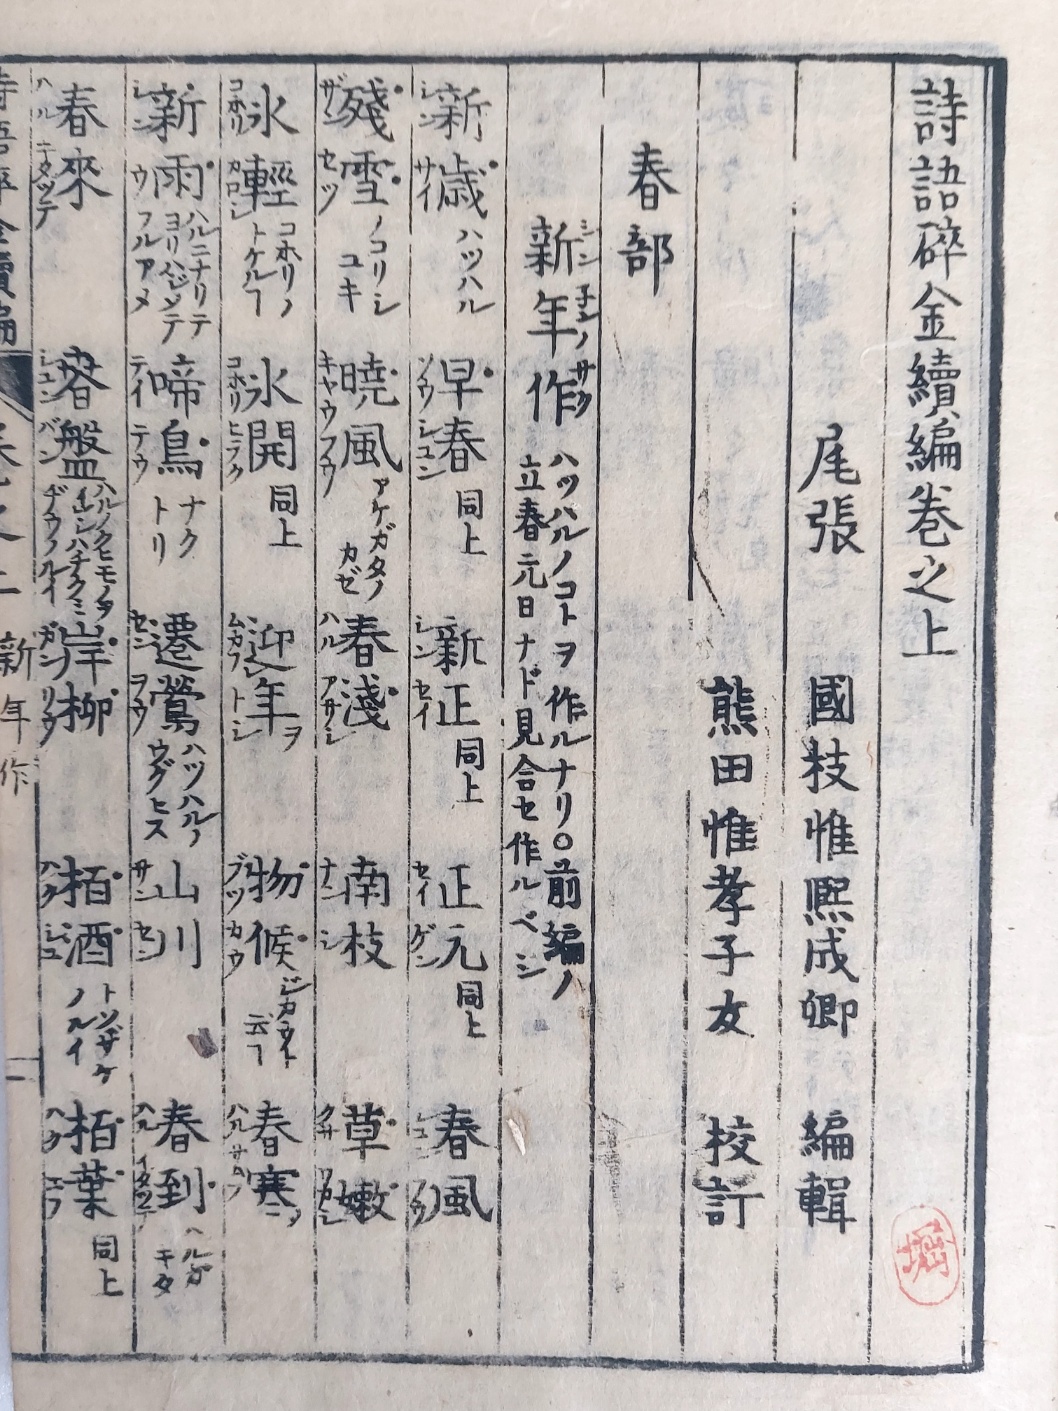 詩語碎金續編卷之上
尾張 國枝惟熈成卿 編輯
熊田惟孝子友 校訂
春部
新年作 ハツハルノコトヲ作ルナリ〇前編ノ
立春元日ナド見合セ作ルベシ
新歳 シンサイ ハツハル 早春 ソウシユン 同上 新正 シンセイ 同上 正元 セイゲン 同上 春風
殘雪 ザンセツ ノコリシユキ 曉風 キヤウフウ アケガタノカゼ 春淺 ハルアサシ 南枝 ナンシ 草嫩
氷輕 コホリカロシ コホリノトケルフ 氷開 コホリヒラク 同上 迎年 ムカフトシヲ 物候 ブツカウ 春寒
新雨 シンウ ハルニナリテヨリハジメテフルアメ 啼鳥 テイテウ ナクトリ 遷鶯 センヲウ ハツハルノウグヒス 山川 サンセン 春到 ハルイタル ハルガキタ
春來 ハルキタツテ 春盤 シユンバン 岸柳 ガンリウ 栢酒 ハクシユ トソザケノルイ 栢葉 ハクエフ 同上
新年作
堀